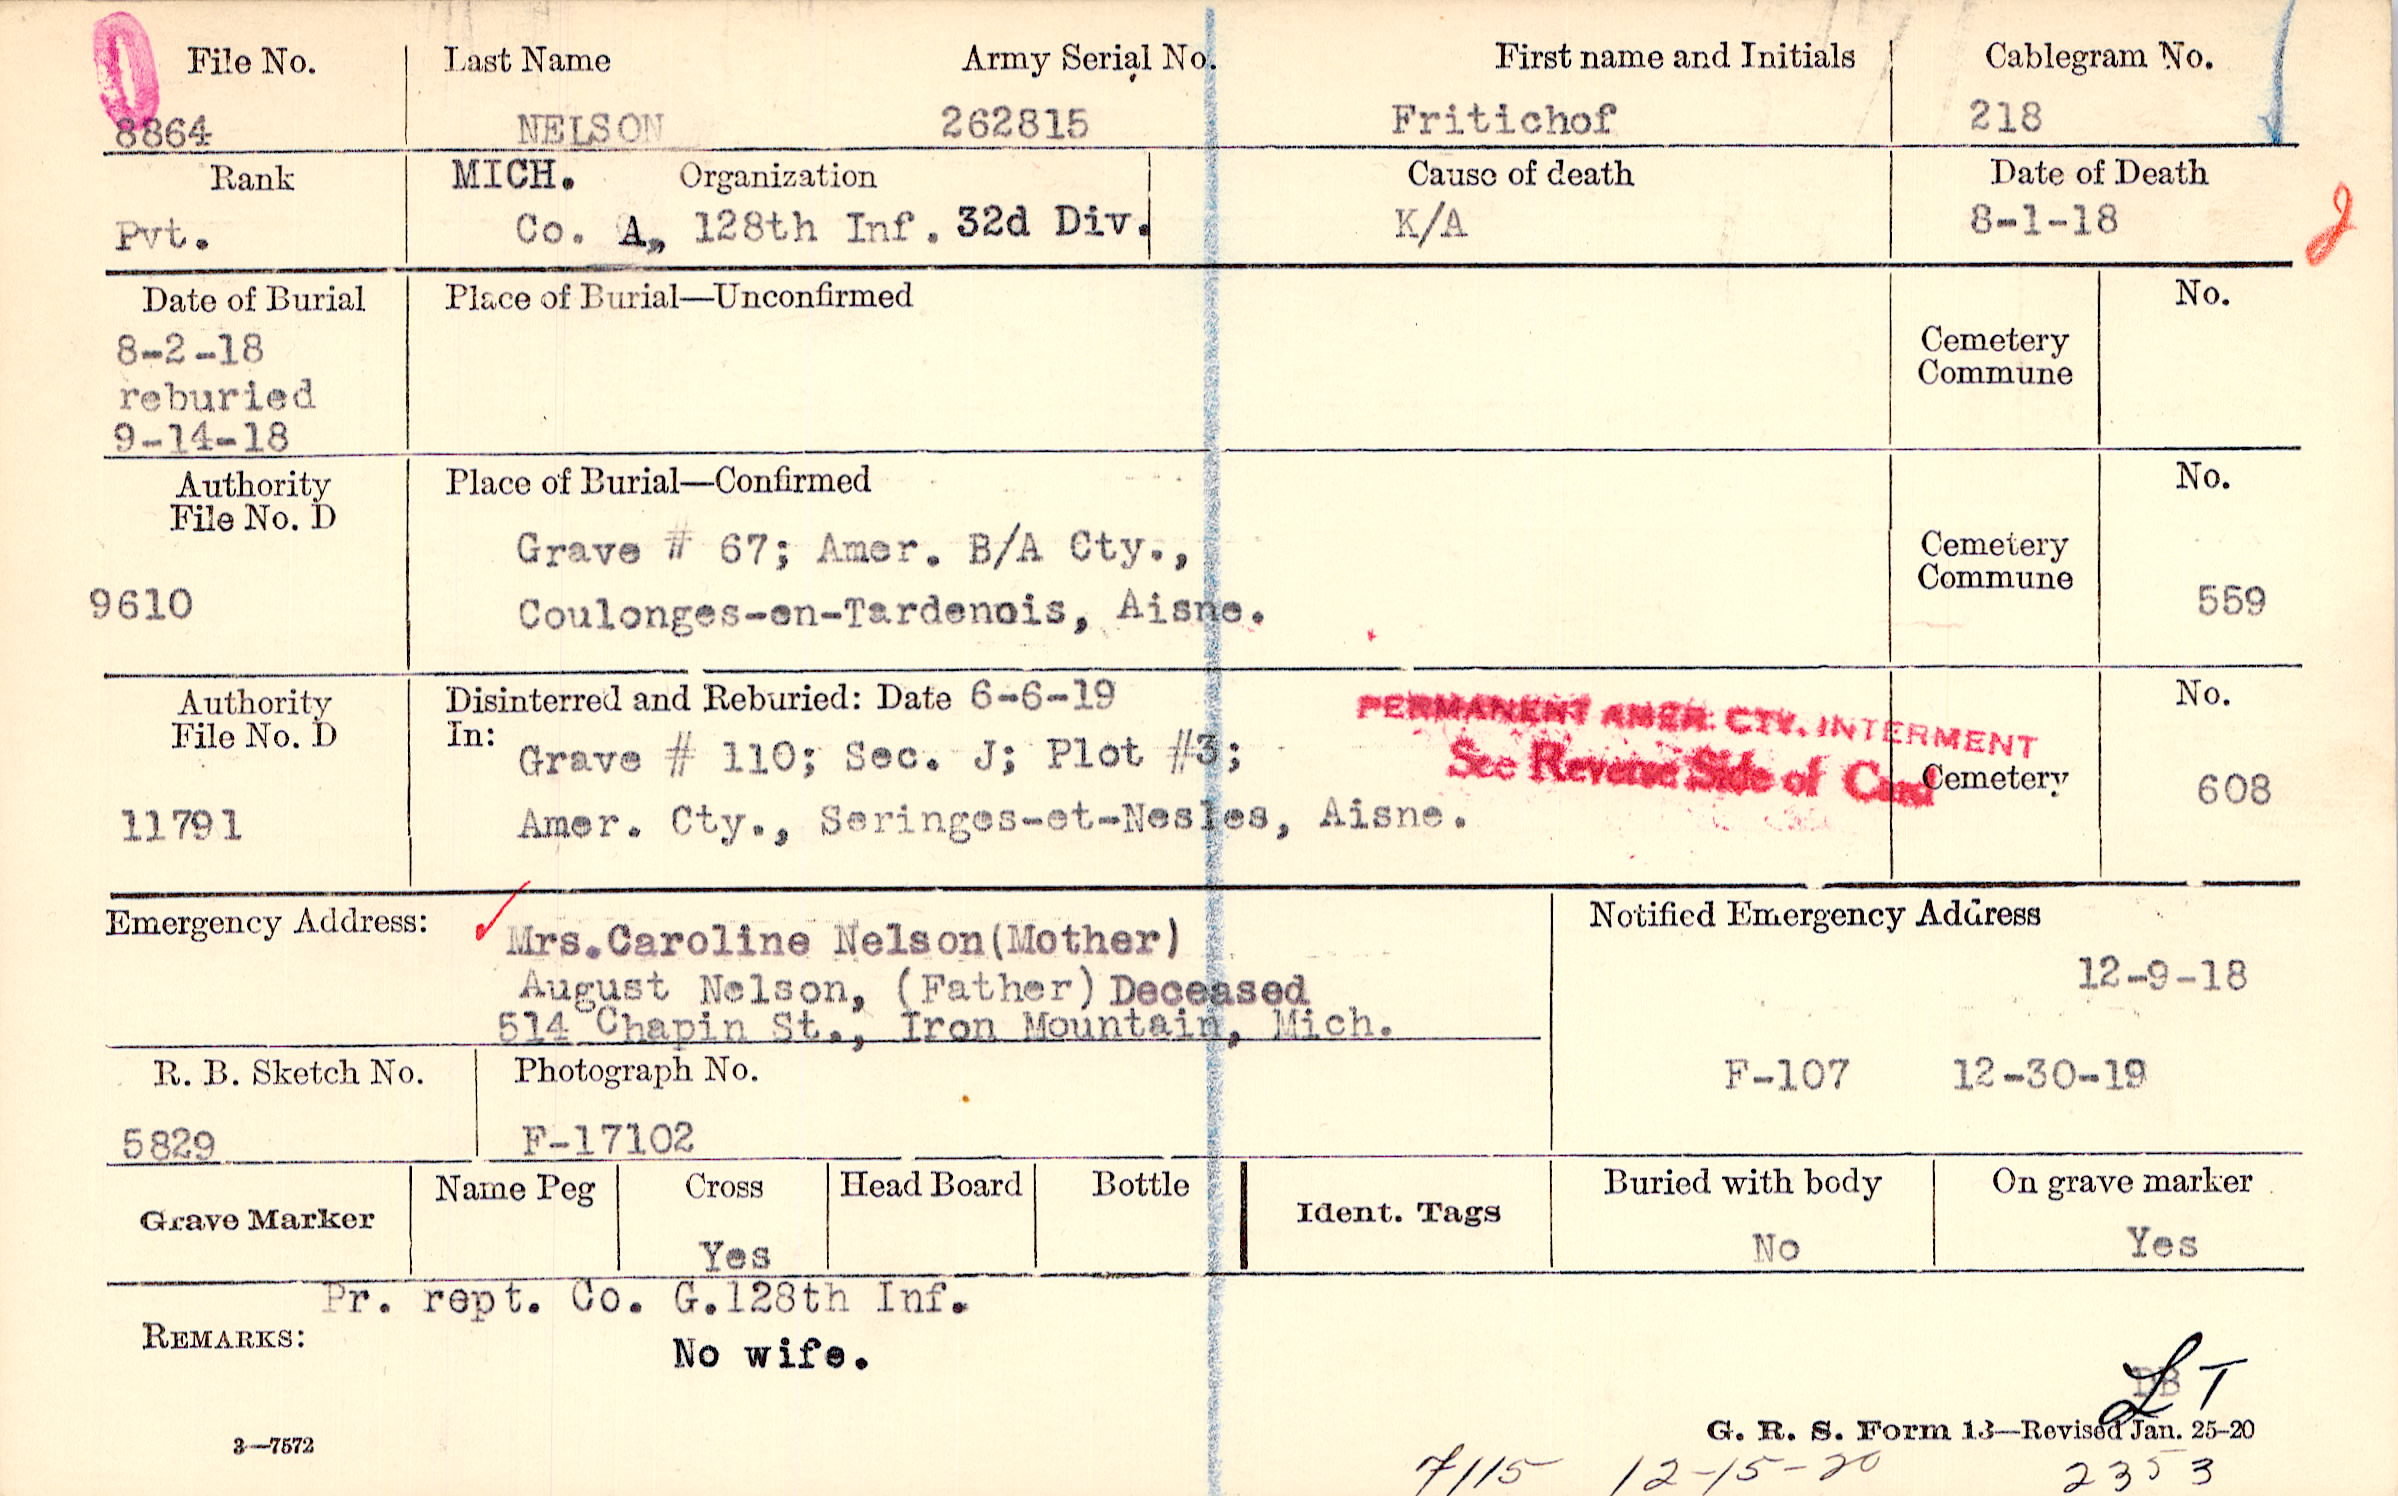 File No. Last Name Army Serial No. First name and Initials Cablegram No.
8864 NELSON 262815 Fritichof 218
Rank MICH. Organization Cause of death Date of Death
Pvt. Co. A, 128th Inf. 32d Div. K/A 8-1-18
2
Date of Burial Place of Burial—Unconfirmed No.
8-2-18
reburied
9-14-18
Cemetery
Commune
Authority
File No. D
Place of Burial—Confirmed No.
Grave # 67; Amer. B/A Cty.,
Coulonges-en-Tardenois, Aisne.
9610
Cemetery
Commune
559
Authority
File No. D
Disinterred and Reburied: Date 6-6-19 No.
In: Grave # 110; Sec. J; Plot #3;
Amer. Cty., Seringes-et-Nesles, Aisne.
11791
PERMANENT AMER. CTY. INTERMENT
See Reverse Side of Card
Cemetery
608
Emergency Address: Mrs.Caroline Nelson(Mother)
August Nelson, (Father) Deceased
514 Chapin St., Iron Mountain, Mich.
Notified Emergency Address
12-9-18
F-107 12-30-19
R. B. Sketch No. Photograph No.
5829 F-17102
Grave Marker Name Peg Cross Head Board Bottle Ident. Tags Buried with body On grave marker
Yes No Yes
Pr. rept. Co. G.128th Inf.
REMARKS:
No wife.
LT
DB
3—7572 G. R. S. Form 13—Revised Jan. 25-20
7115 12-15-20 2353